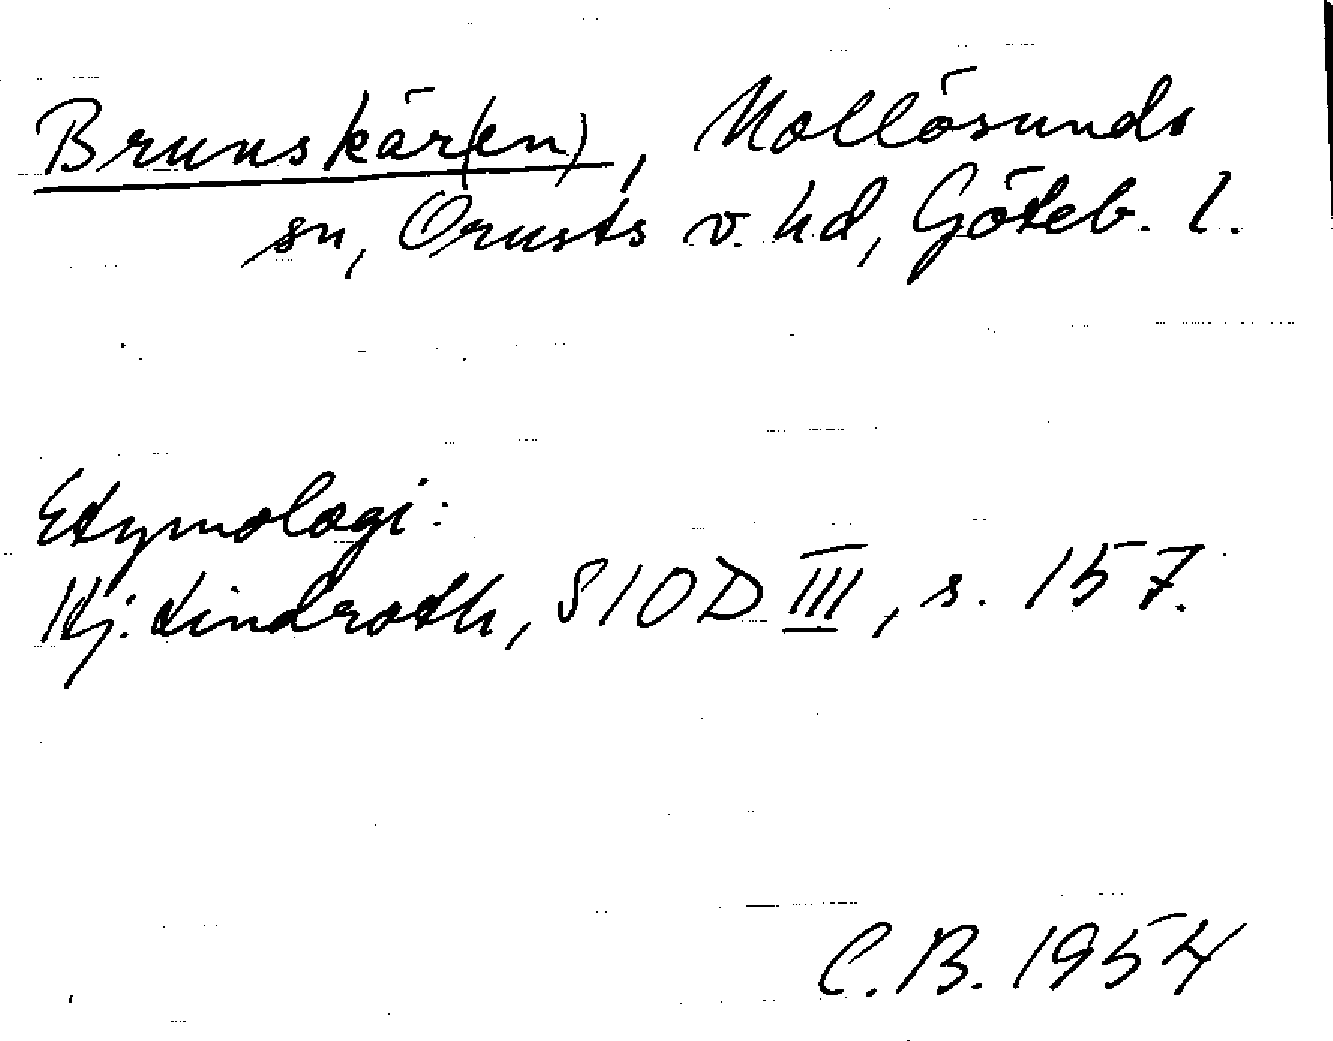 Brunskär(en), Mollösunds
sn, Orusts v. hd, Göteb. l.
Etymologi:
Hj. Lindroth, SIOD III, s. 157.
C.B. 1954